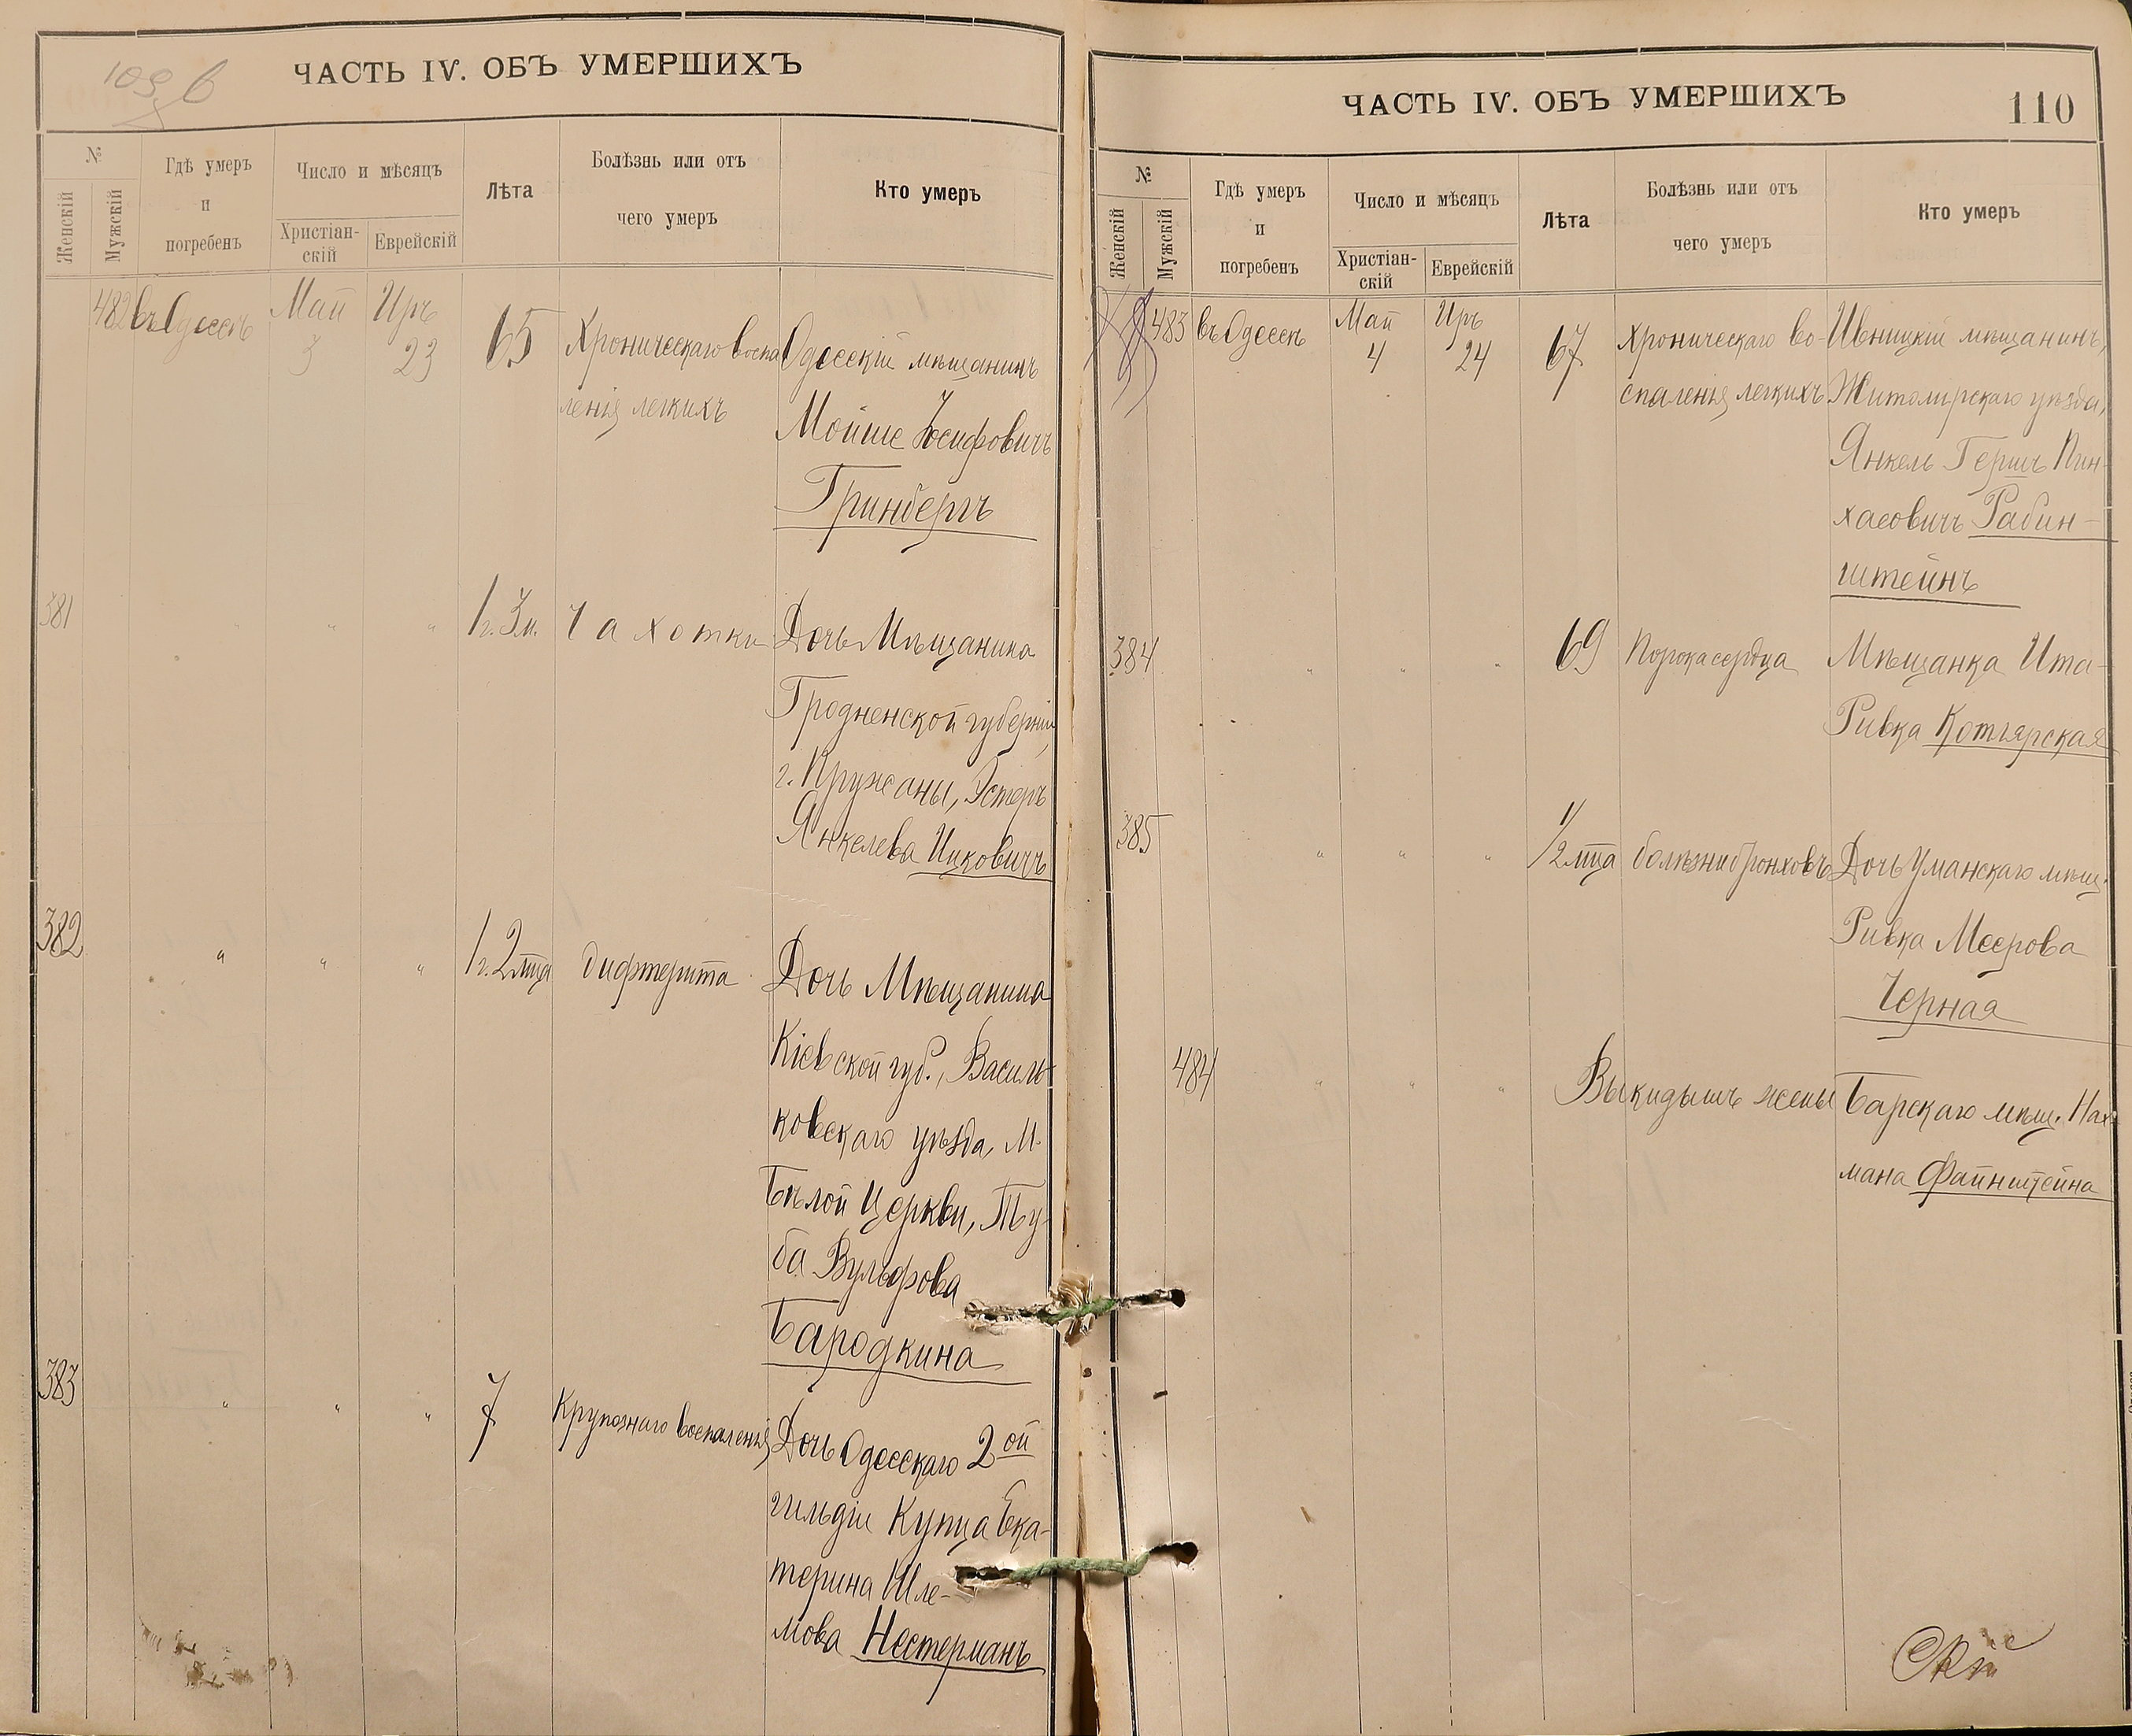 109 в
ЧАСТЬ IV. ОБЪ УМЕРШИХЪ
№
Женскій
Мужскій
Гдѣ умеръ
и
погребенъ
Число и мѣсяцъ
Христіан-
скій
Еврейскій
Лѣта
Болѣзнь или отъ
чего умеръ
Кто умеръ
482 въ Одессѣ Май Иръ 65 Хроническаго воспа Одесскій мѣщанинъ
3 23 ленія легкихъ
Мойше Іосифовичъ
Гринбергъ
381 " " " 1 г. 3 м. Чахотки Дочь Мѣщанина
Гродненской губерніи,
г. Пружаны, Эстеръ
Янкелева Ицковичъ
382 " " " 1 г. 2 мца дифтерита Дочь Мѣщанина
Кіевской губ., Василь-
ковскаго уѣзда, М.
Бѣлой Церкви, Тъу-
ба Вульфова
Бародкина
383 " " " 7 Крупознаго воспаленія Дочь Одесскаго 2ой
гильдіи Купца Ека-
терина Шле-
мова Нестерманъ
ЧАСТЬ IV. ОБЪ УМЕРШИХЪ
110
№
Женскій
Мужскій
Гдѣ умеръ
и
погребенъ
Число и мѣсяцъ
Христіан-
скій
Еврейскій
Лѣта
Болѣзнь или отъ
чего умеръ
Кто умеръ
483 въ Одессѣ Май Иръ 67 Хроническаго во- Ивницкій мѣщанинъ,
4 24 спаленія легкихъ Житомирскаго уѣзда,
Янкель Гершъ Пин-
хасовичъ Рабин-
штейнъ
384 " " " 69 Порока сердца Мѣщанка Ита-
Ривка Котлярская
385 " " " 1/2 мца болѣзни бронховъ Дочь Уманскаго мѣщ.
Ривка Меерова
Черная
484 " " " Выкидышъ жены Барскаго мѣщ. Нах-
мана Файнштейна